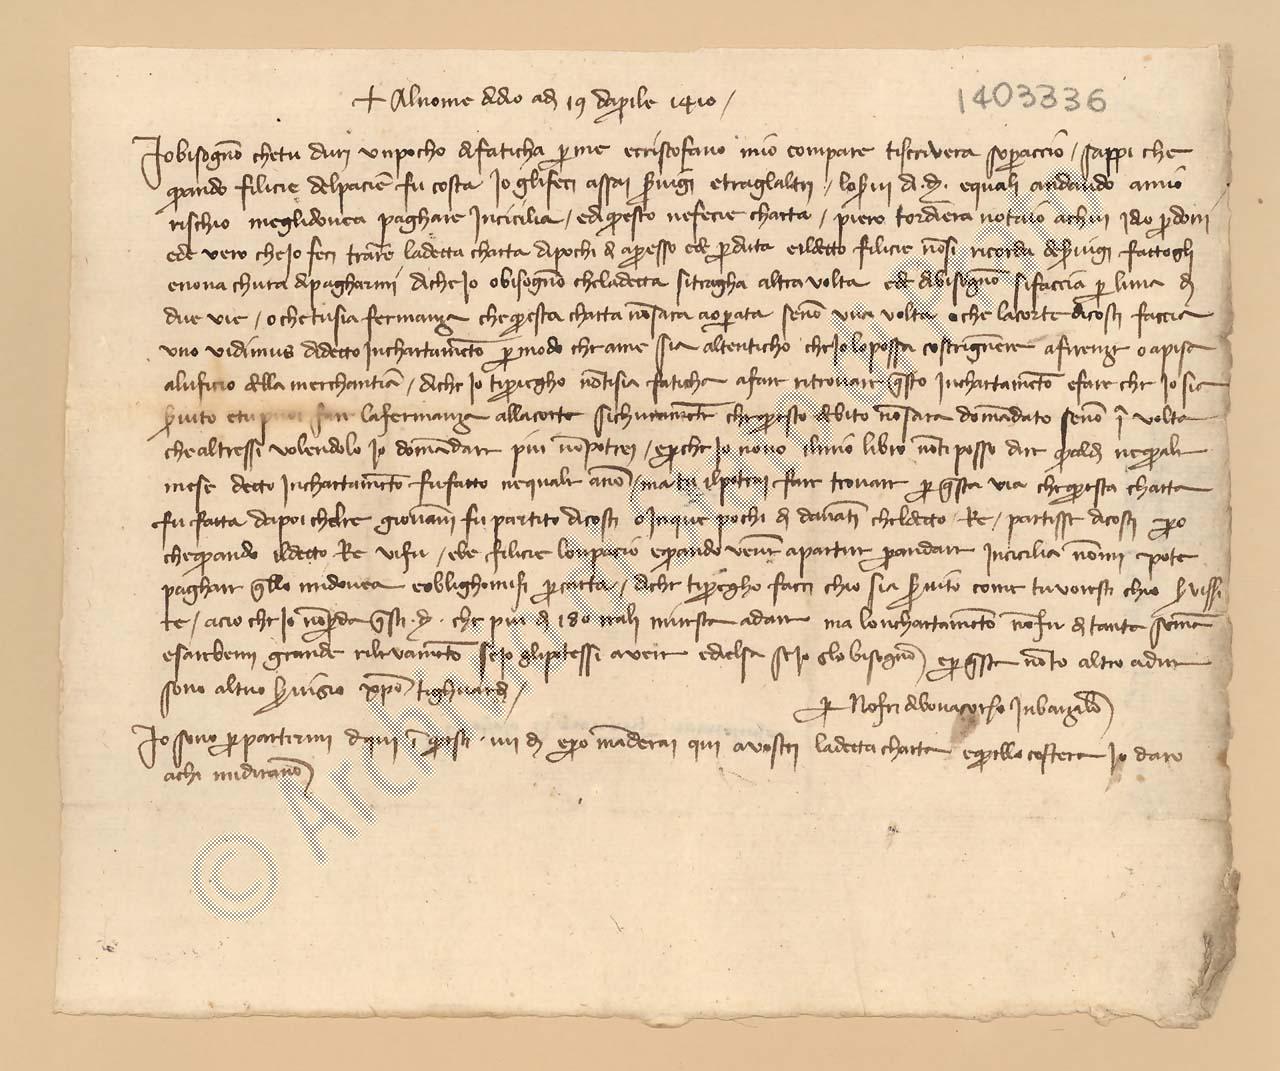 + Al nome di dio adi 19 daprile 1410 /
1403336
Io bisogno che tu duri un pocho di faticha per me e cristofano mio compare ti scrivera sopraccio / sappi che
quando filicie del pacie fu costa io gli feci assai servigi e tra gl altri / lo servi di d. equali andando a mio
rischio me gli dovea paghare in cicilia / ed questo ne fecie charta / piero notaio
ed e vero che io feci trarre la detta charta di pochi di apresso ed e perduta e il detto filicie non si ricorda de servigi fattogli
e non a chura di pagharmi di che io o bisogno che la detta si tragha altra volta ed e di bisogno si faccia per l una di
due vie / o che tu sia fermanza che questa charta non sara aoperata se no una volta o che la corte di costi faccia
uno vidimus di detto inchartamento per modo che a me sia altenticho che io lo possa costrignere a firenze o a pisa
al uficio della merchantia / di che io ti priegho non ti sia faticha a fare ritrovare questo inchartamento e fare che io sia
servito e tu puoi fare la fermanza alla corte sichuramente che questo debito non sara domandato se no i volta
che altressi volendolo io domandare piu non potrei / e perche io non o il mio libro non ti posso dire qual di ne quale
mese detto inchartamento fu fatto ne quale anno / ma tu il potrai fare trovare per questa via che questa charta
fu fatta da poi che lre giovanni fu partito di costi o in que pochi di davanti che l detto Re / partisse di costi pero
che quando il detto Re vi fu / ebe filicie e quando venne a partire per andare in cicilia non mi pote
paghare quello mi dovea e obblighomisi per carta / di che ti priegho facci chio sia servito come tu voresti chio servissi
te / acio che io non perda questi d. che piu di 180 mi resta a dare ma l onchartamento non fu di tanta somma
e sarebemi grande rilevamento se io gli potessi avere ed elsa se io gl o bisogno / e per questa non to altro a dire
sono al tuo servigio / xpo ti ghuardi /
per Nofri di bonacorso in barzalona
Io sono per partirmi di qui i questi iiii di e pero manderai qui a vostri la detta charta e quello costera io daro
a chi mi diranno
© Archivio di Stato di Prato